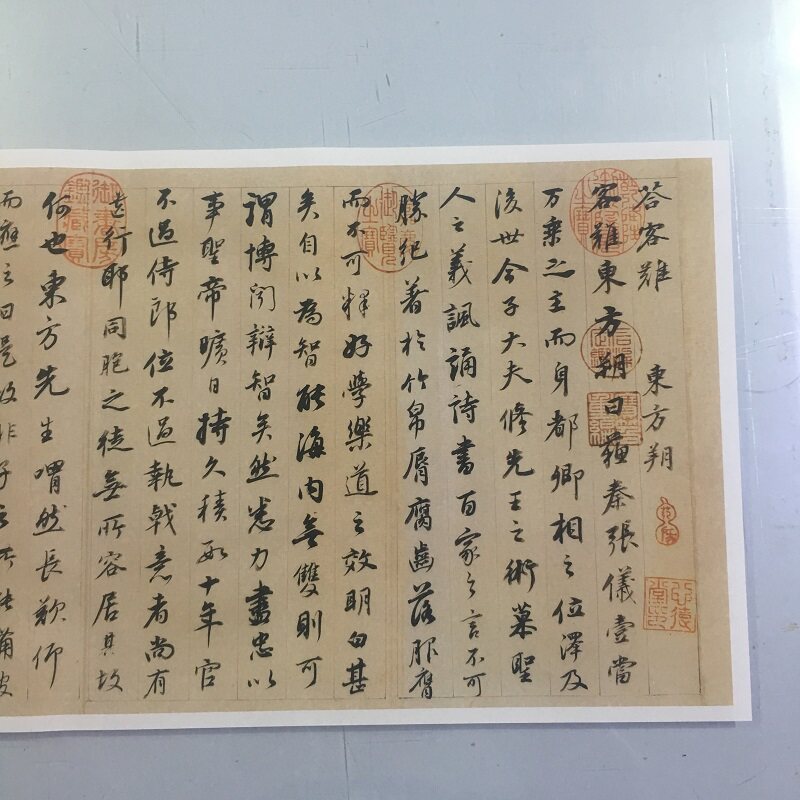 答客難 東方朔
客難東方朔曰蘇秦張儀壹當
万乘之主而身都卿相之位澤及
後世今子大夫修先王之術慕聖
人之義諷誦詩書百家之言不可
勝紀著於竹帛脣腐齒落服膺
而不可釋好學樂道之效明白甚
矣自以為智能海內無雙則可
謂博聞辯智矣然悉力盡忠以
事聖帝曠日持久積數十年官
不過侍郎位不過執戟意者尚有
遺行耶同胞之徒無所容居其故
何也東方先生喟然長歎仰
而應之曰是故非子之所能備彼
御書房鑑藏寶